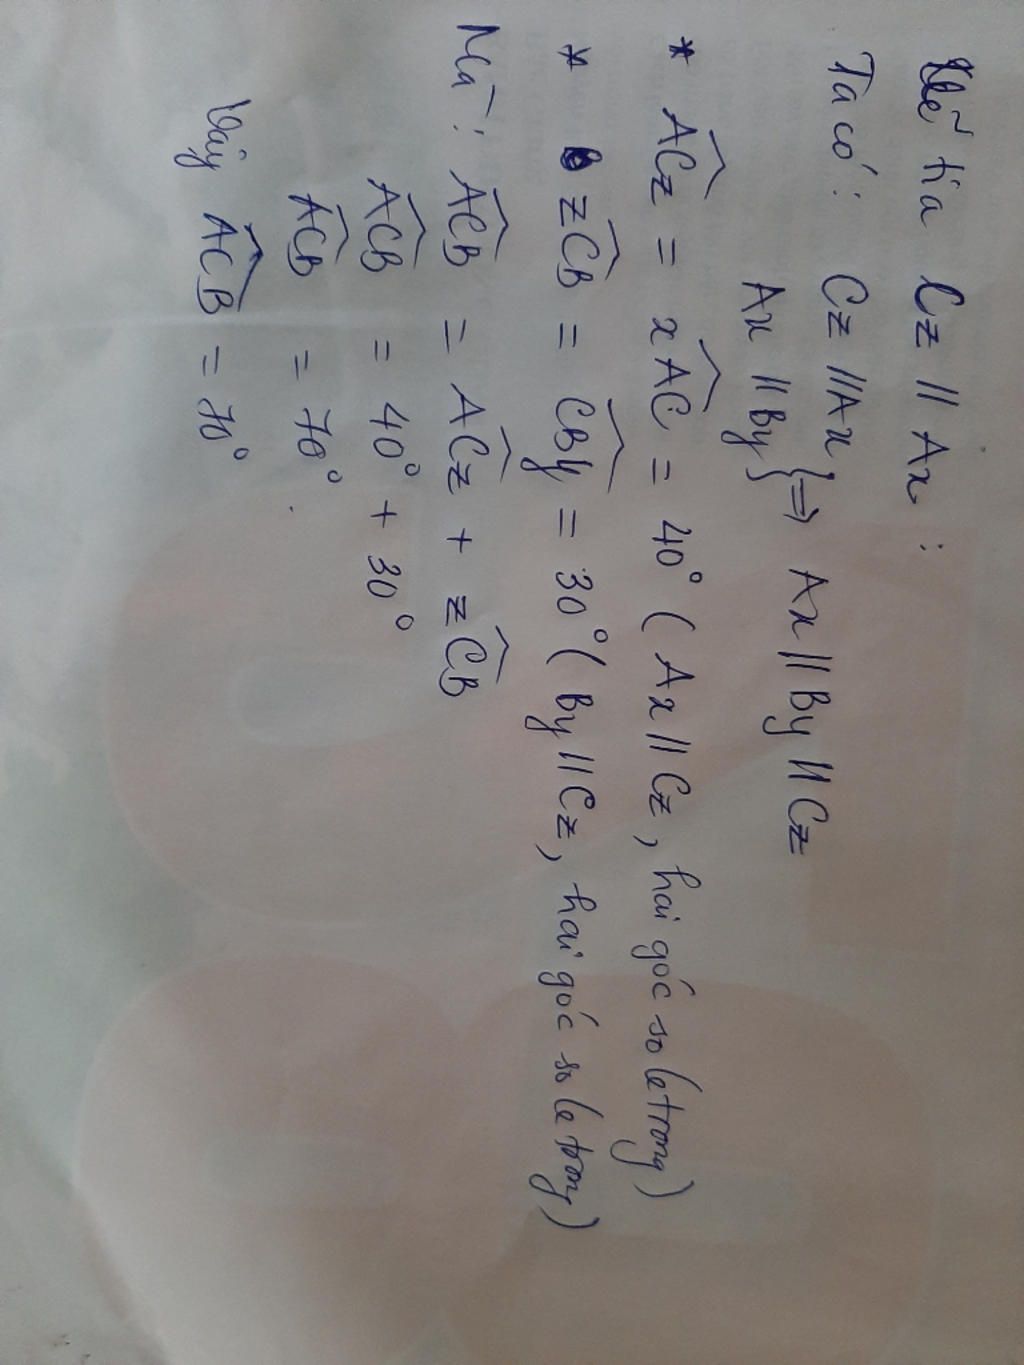 Vẽ tia Cz // Ax :
Ta có : Cz // Ax
Ax // By } => Ax // By // Cz
* ACz = xAC = 40° ( Ax // Cz , hai góc so le trong )
* zCB = CBy = 30° ( By // Cz , hai góc so le trong )
Mà : ACB = ACz + zCB
ACB = 40° + 30°
ACB = 70° .
Vậy ACB = 70°